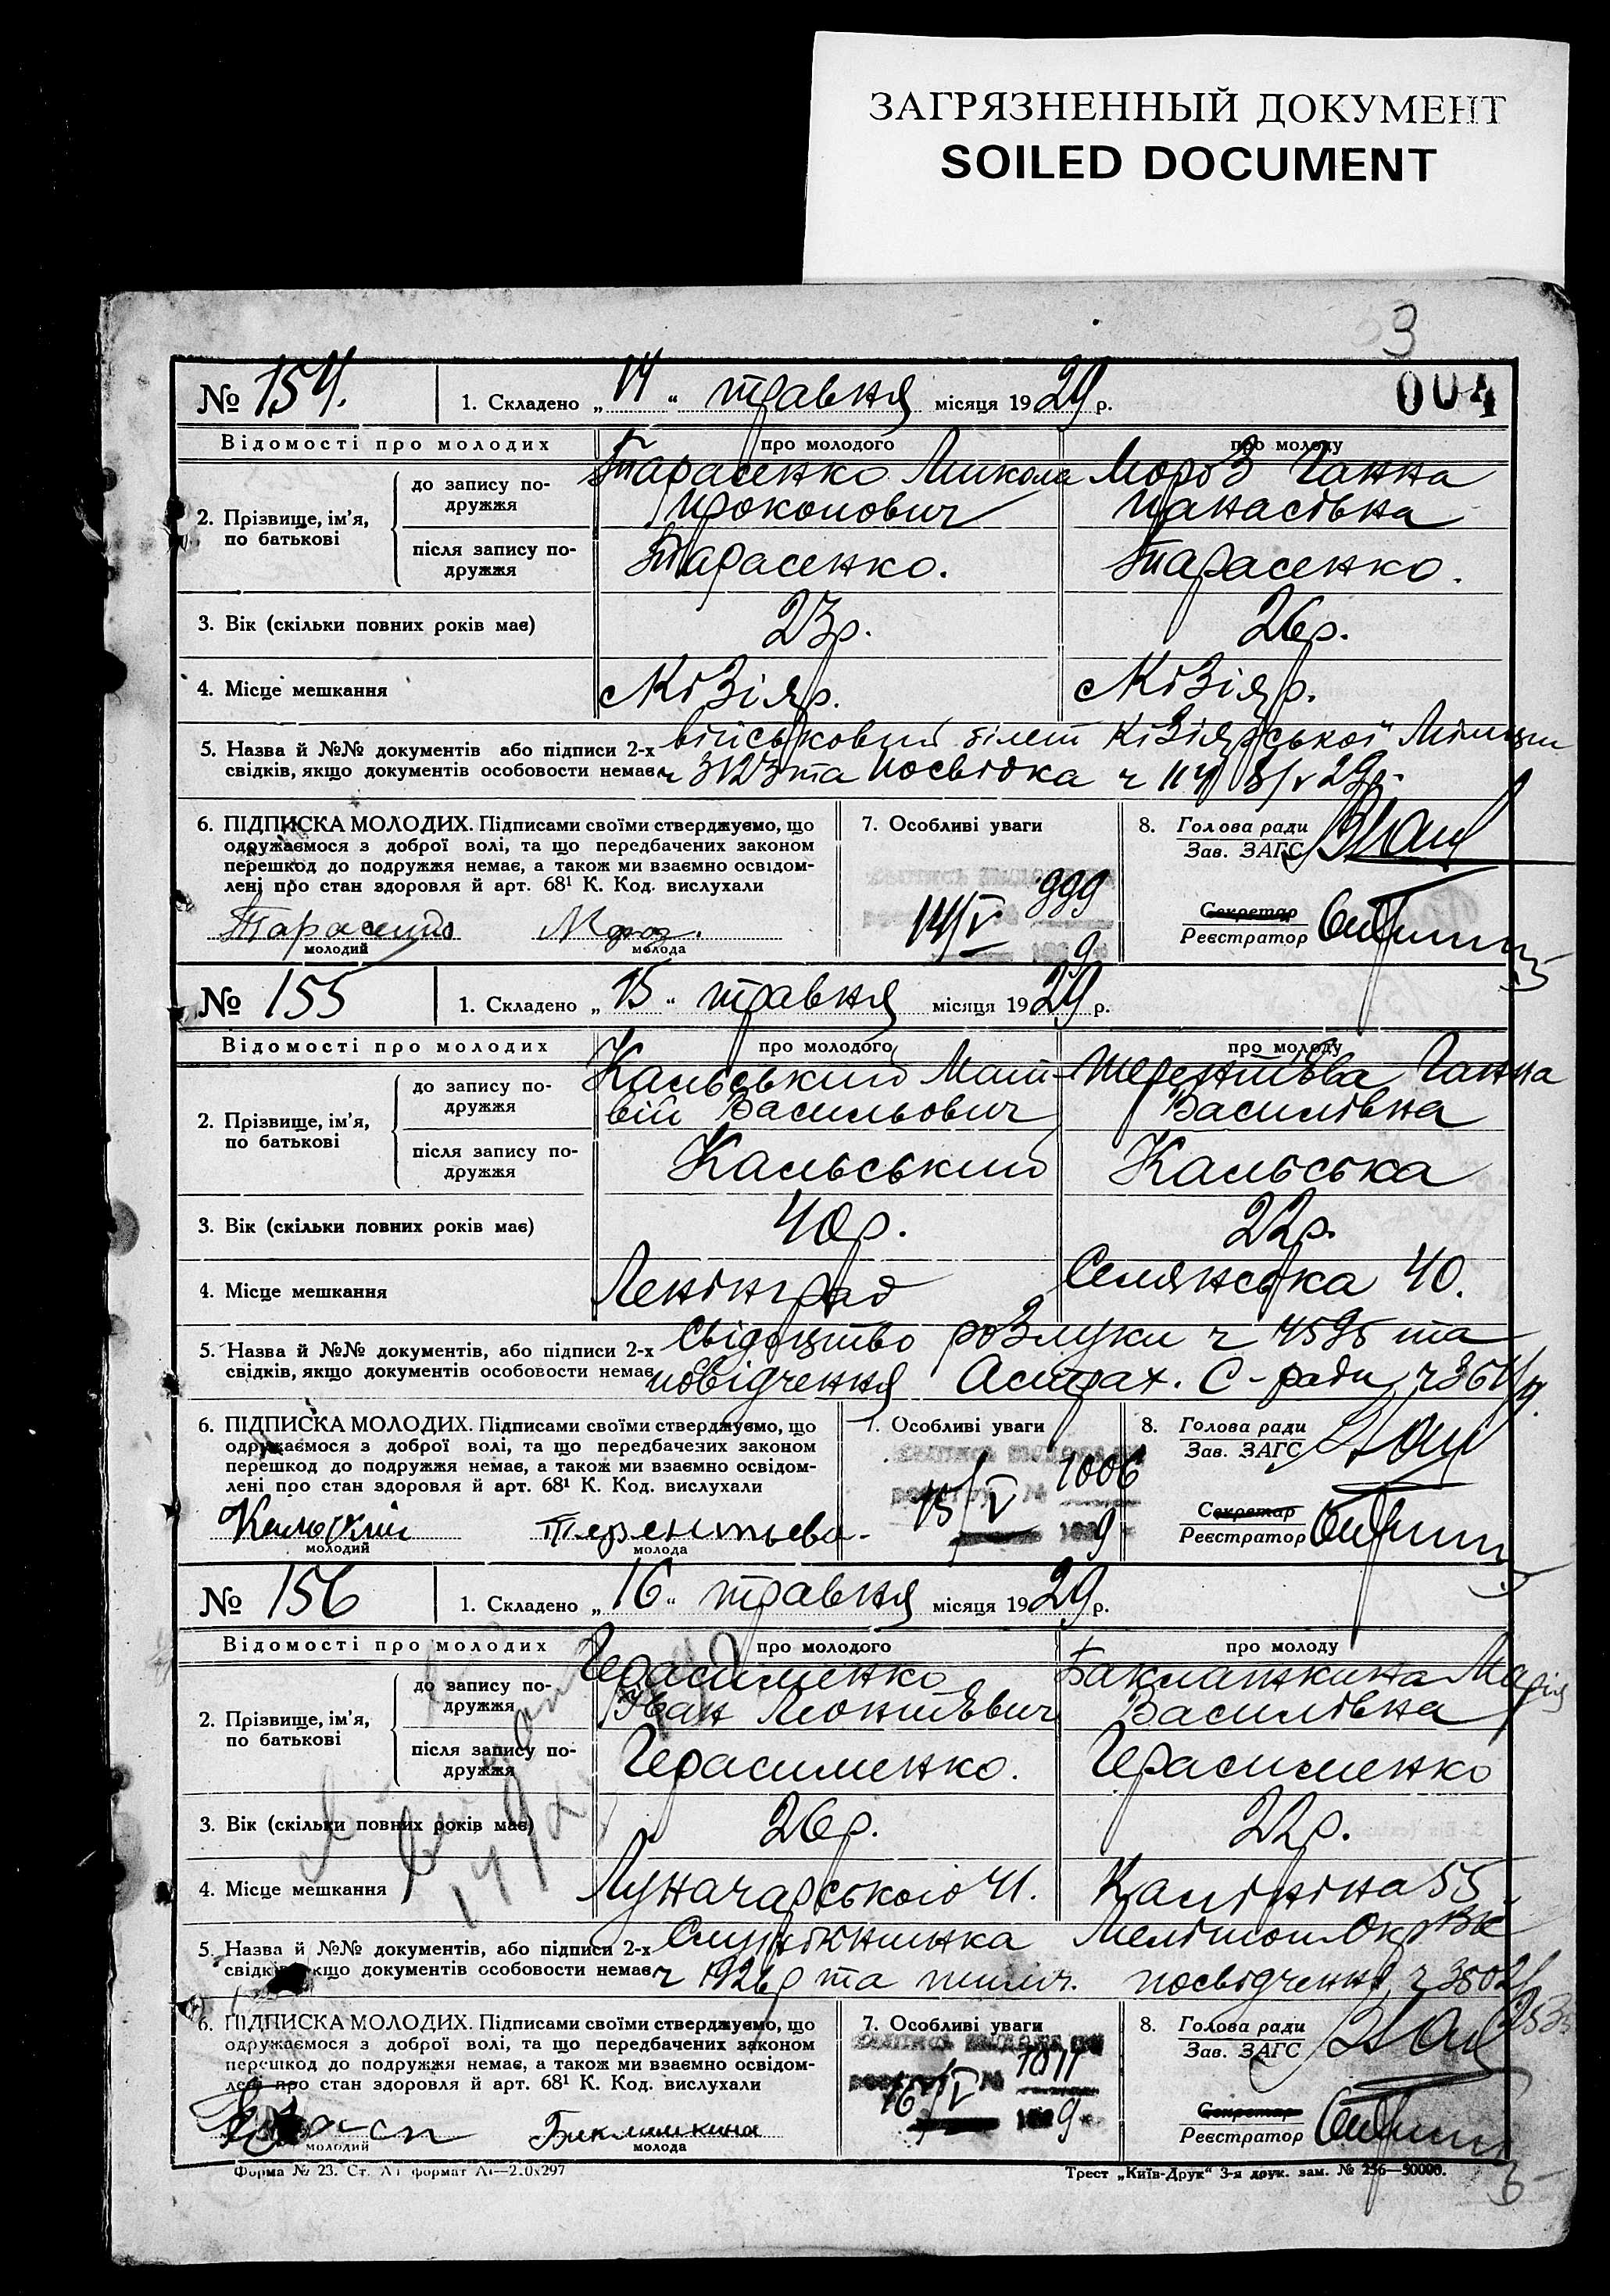 ЗАГРЯЗНЕННЫЙ ДОКУМЕНТ
SOILED DOCUMENT
3
004
№ 154. 1. Складено „14“ травня місяця 1929 р.
Відомості про молодих про молодого про молоду
2. Прізвище, ім’я, по батькові
до запису подружжя
Тарасенко Микола Мороз Ганна
Прокопович Панасівна
після запису подружжя
Тарасенко. Тарасенко.
3. Вік (скільки повних років має) 23р. 26р.
4. Місце мешкання Кізіяр. Кізіяр.
5. Назва й №№ документів або підписи 2-х військовий білет Кізіярської Міліции
свідків, якщо документів особовости немає ч 3123 та посвідка ч 114 8/V 29р.
6. ПІДПИСКА МОЛОДИХ. Підписами своїми стверджуємо, що
одружаємося з доброї волі, та що передбачених законом
перешкод до подружжя немає, а також ми взаємно освідом-
лені про стан здоровля й арт. 68¹ К. Код. вислухали
Тарасенко Мороз.
молодий молода
7. Особливі уваги
999
14/V
9
8. Голова ради
Зав. ЗАГС
Секретар
Реєстратор
№ 155 1. Складено „15“ травня місяця 1929 р.
Відомості про молодих про молодого про молоду
2. Прізвище, ім’я, по батькові
до запису подружжя
Кальський Мат- Терентьєва Ганна
вій Васильович Василівна
після запису подружжя
Кальський Кальська
3. Вік (скільки повних років має) 40р. 22р.
4. Місце мешкання Ленінград Селянська 40.
5. Назва й №№ документів, або підписи 2-х Свідоцтво розлуки ч 4595 та
свідків, якщо документів особовости немає посвідчення Астрах. С-ради
6. ПІДПИСКА МОЛОДИХ. Підписами своїми стверджуємо, що
одружаємося з доброї волі, та що передбачених законом
перешкод до подружжя немає, а також ми взаємно освідом-
лені про стан здоровля й арт. 68¹ К. Код. вислухали
Кальский Терентьева
молодий молода
7. Особливі уваги
1006
15/V №
1929
8. Голова ради
Зав. ЗАГС
Секретар
Реєстратор
№ 156 1. Складено „16“ травня місяця 1929 р.
Відомості про молодих про молодого про молоду
2. Прізвище, ім’я, по батькові
до запису подружжя
Герасименко Баклашкина Марія
Іван Леонтьєвич Василівна
після запису подружжя
Герасименко. Герасименко
3. Вік (скільки повних років має) 26р. 22р.
4. Місце мешкання Луначарського 41. Калініна 55
5. Назва й №№ документів, або підписи 2-х Мелітоп. Окр ВК
свідків, якщо документів особовости немає ч 1926р та посвідчення
6. ПІДПИСКА МОЛОДИХ. Підписами своїми стверджуємо, що
одружаємося з доброї волі, та що передбачених законом
перешкод до подружжя немає, а також ми взаємно освідом-
лені про стан здоровля й арт. 68¹ К. Код. вислухали
Баклашкина
молодий молода
7. Особливі уваги
1011
16/V №
1929
8. Голова ради
Зав. ЗАГС
Секретар
Реєстратор
Форма № 23. Ст. А4 формат А4—210х297 Трест „Київ-Друк“ 3-я друк. зам. № 256—50000.